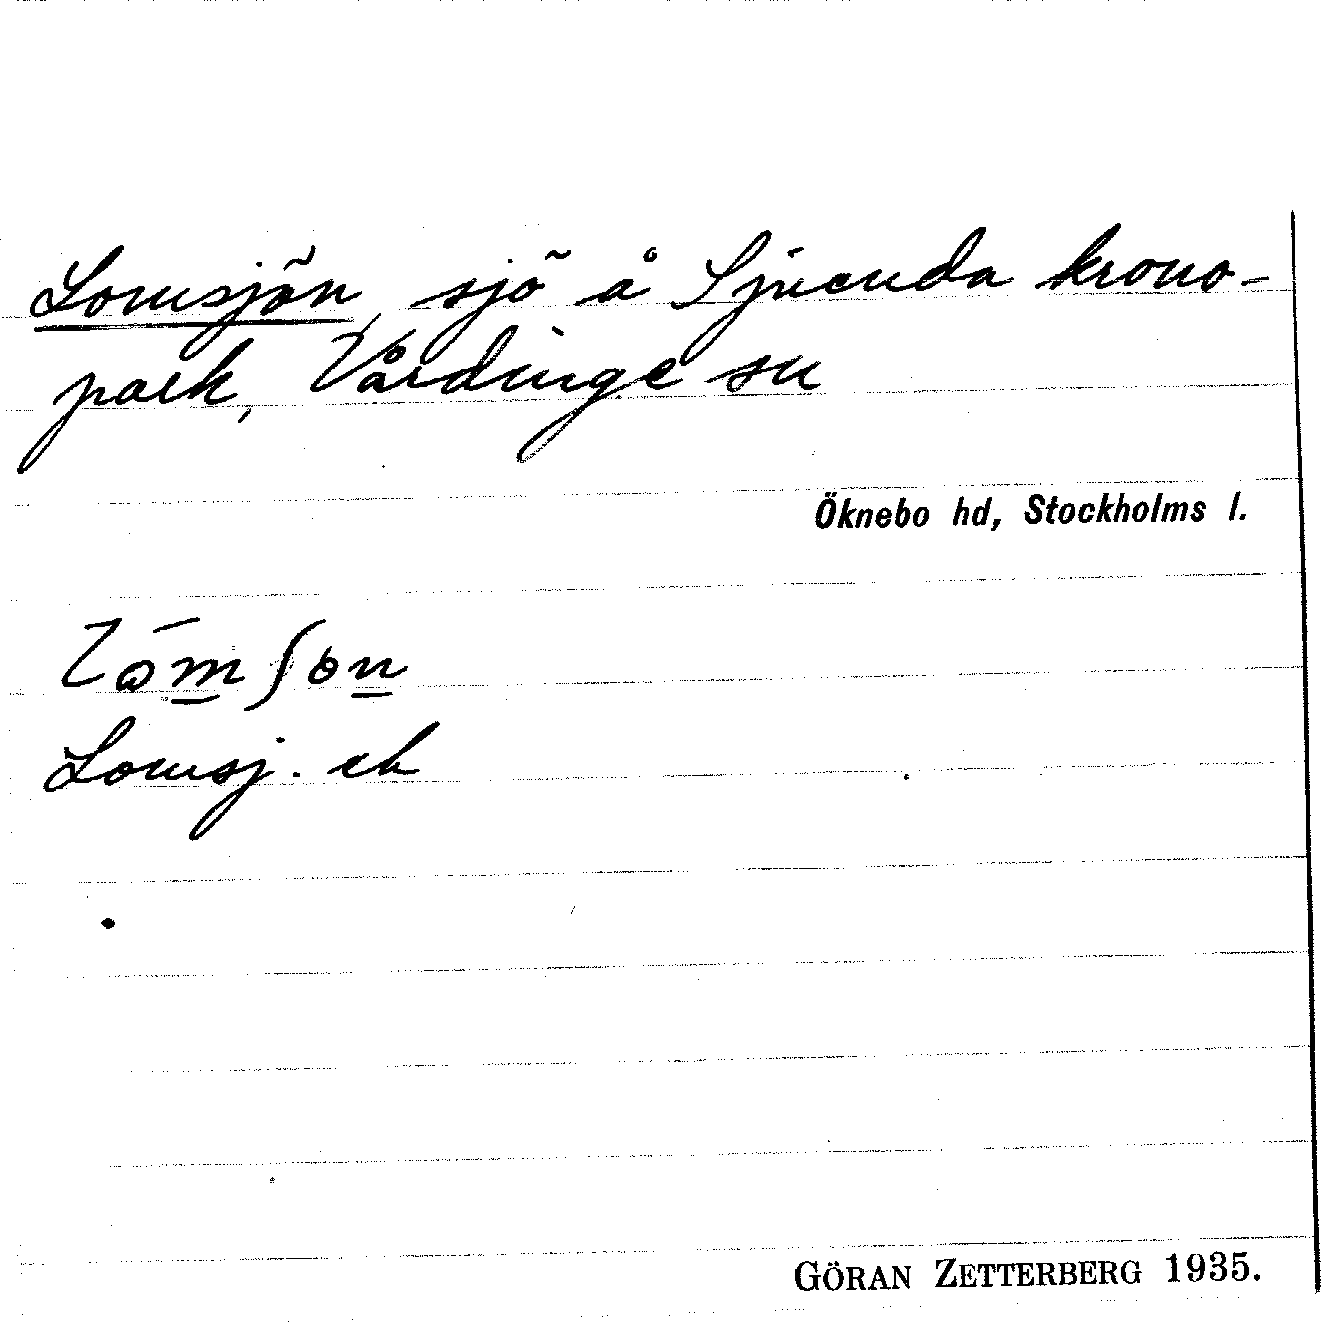 Lomsjön, sjö å Sjuenda krono-
park, Vårdinge sn
Öknebo hd, Stockholms l.
Lomsj. ek
GÖRAN ZETTERBERG 1935.